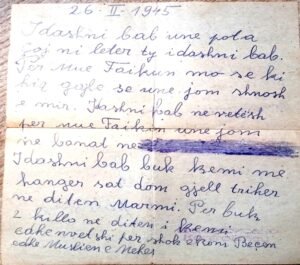 26-II-1945
Idashni bab une po ta
çoj ni leter ty i dashni bab.
Per mue Faikun mo se ki
hiç gajle se une jom shnosh
e mir. Idashni bab ne vetësh
per mue Faikin une jom
ne banat ne
Idashni bab buk kemi me
hanger sat dom gjell triher
ne diten Marmi. Per buk
2 killo ne diten i kemi
edhe vetshi per shok e kom Beçen
edhe Muslien e Mehes